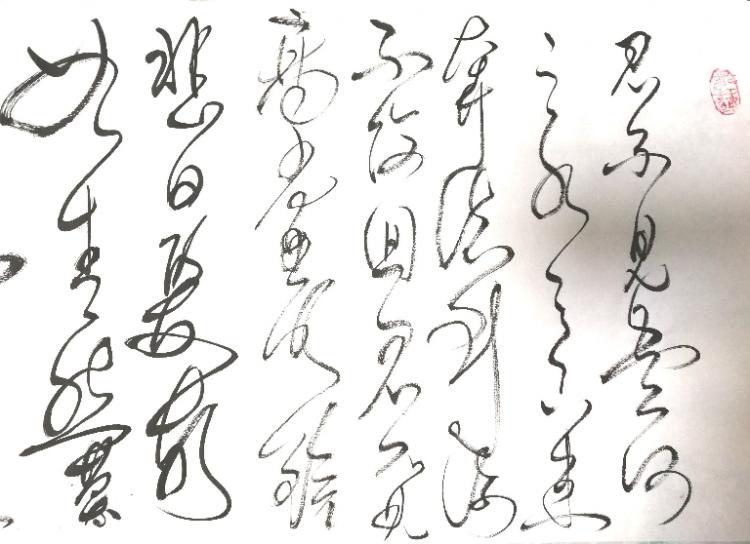 君不见黄河
之水天上来
奔流到海
不復回君不见
高堂明镜
悲白髮朝
如青丝暮